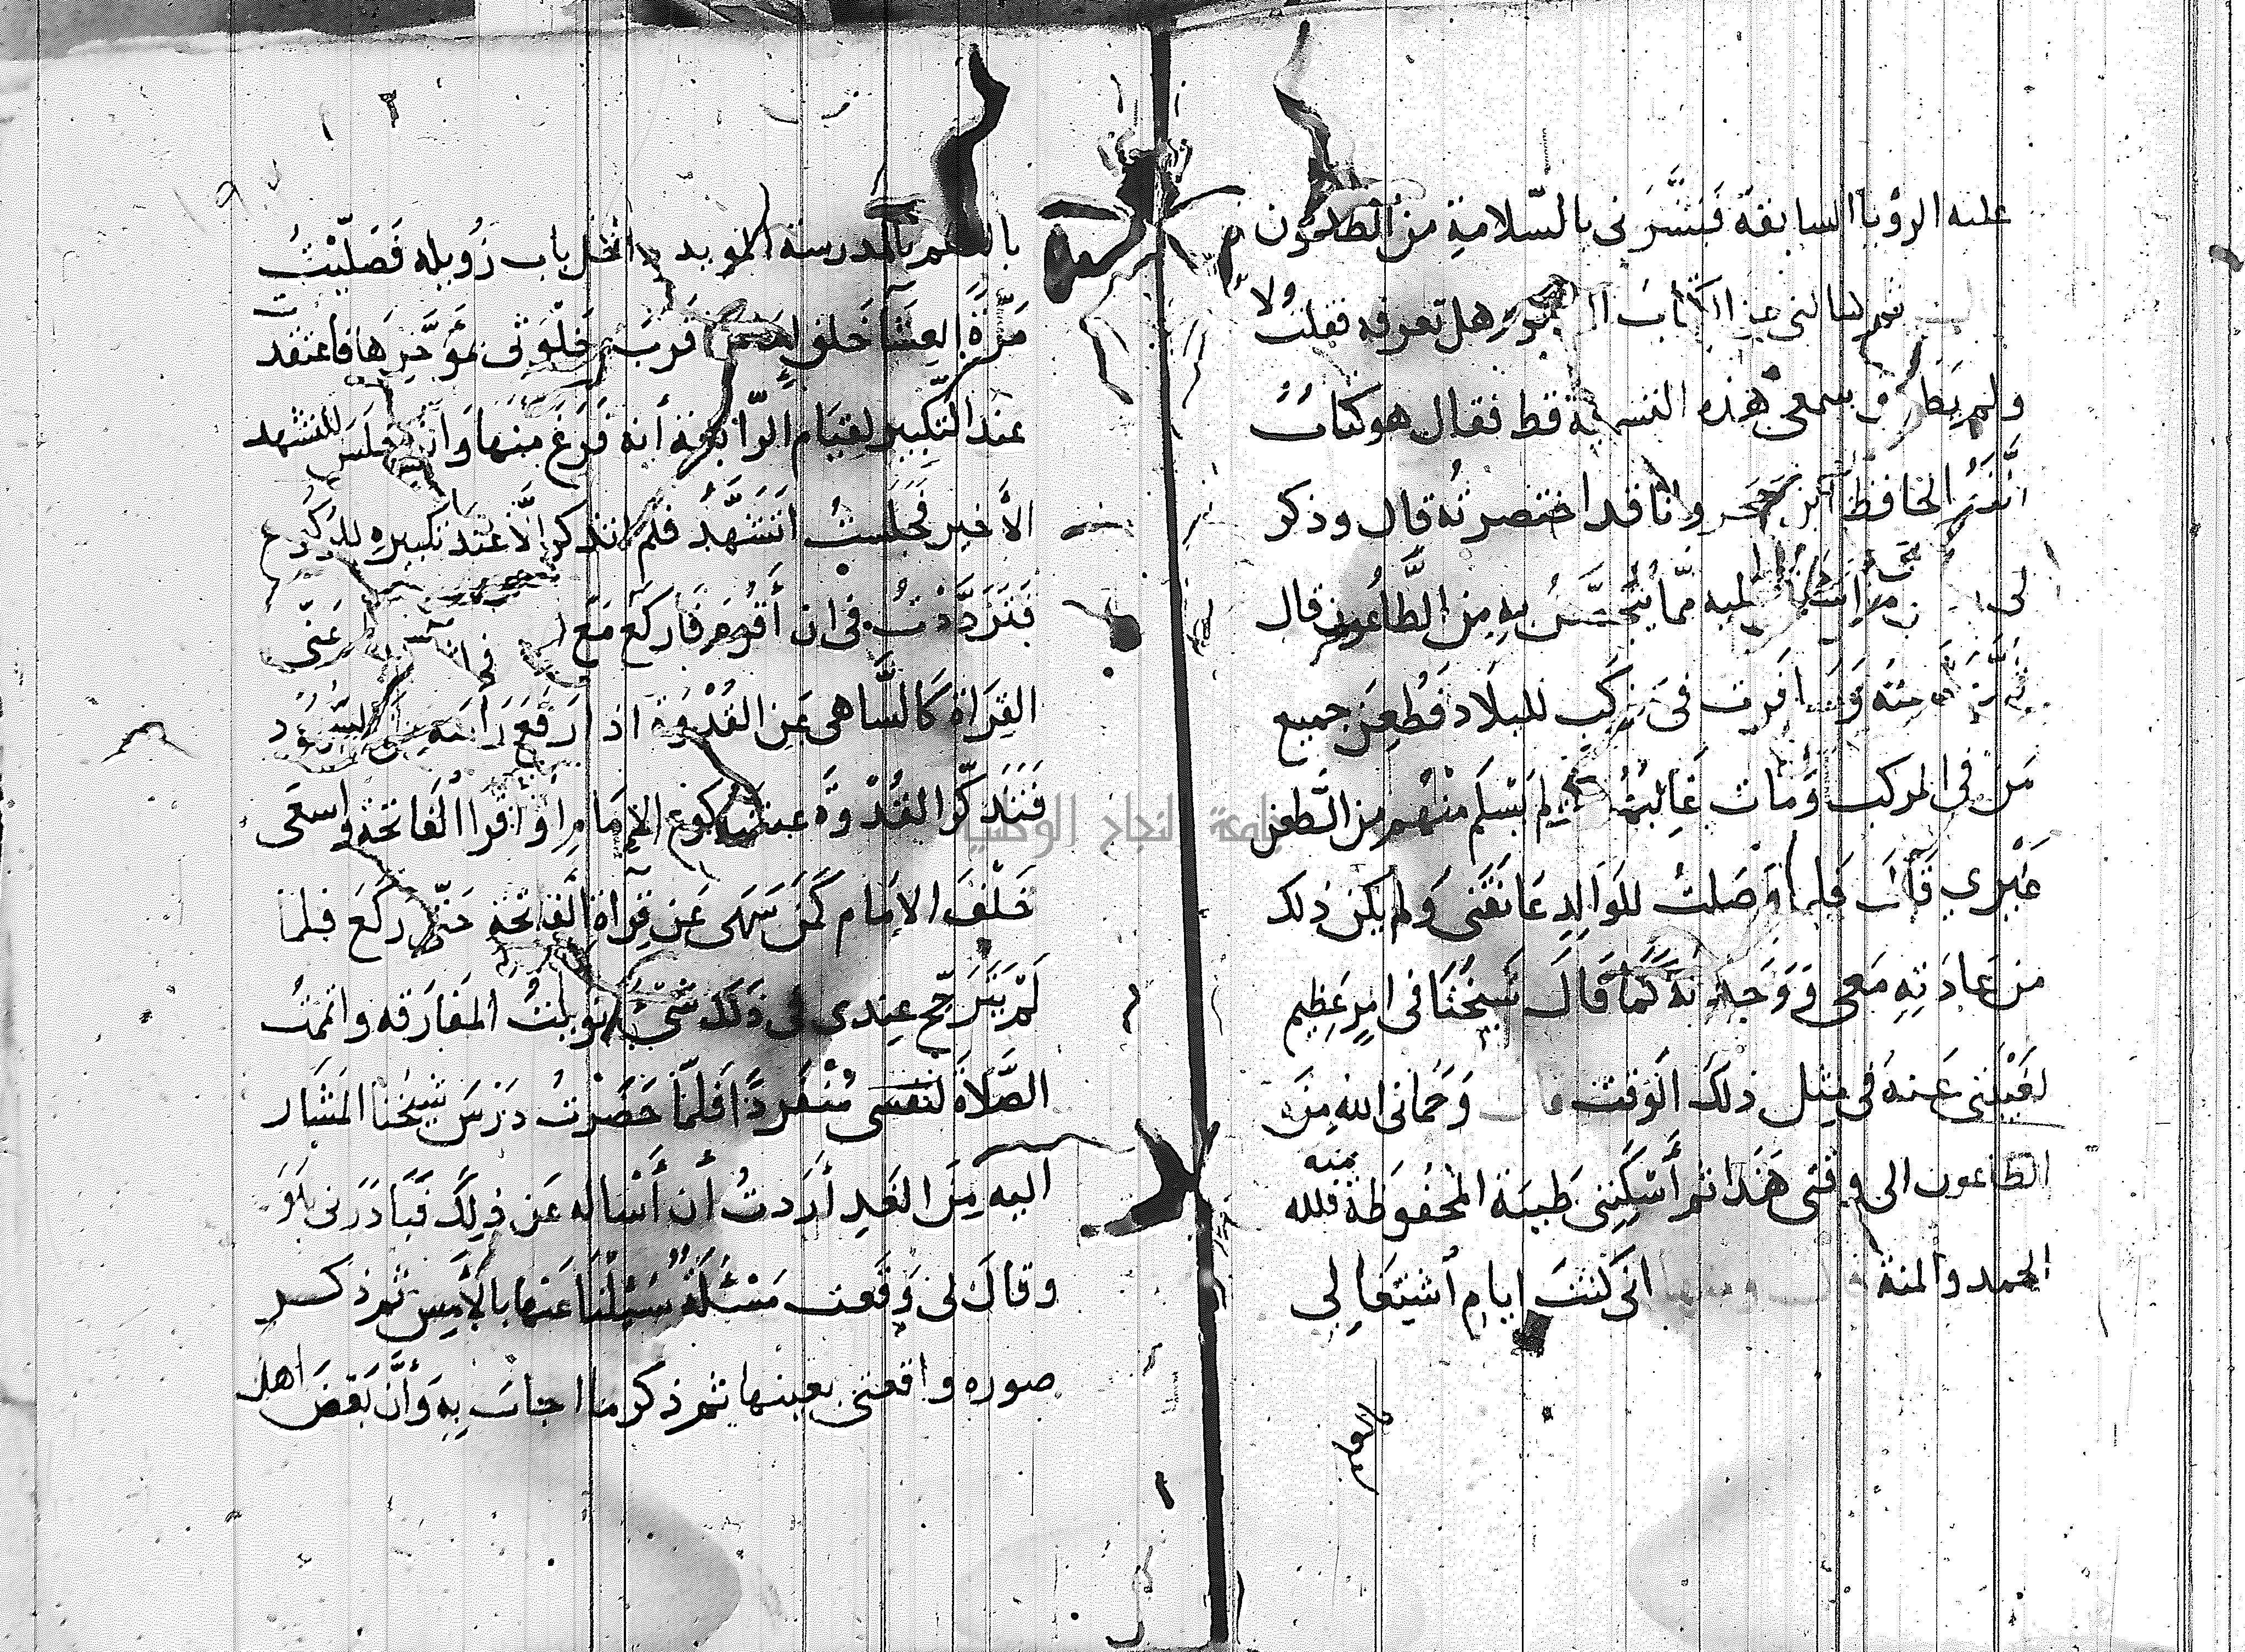 عليه الرؤيا السابقة فبشَّرَني بالسّلامةِ من الطاعون
ثم سالني عن الكتاب هل تعرفه فقلت ولا
ولم يَطرق سمعي هذه التسمية قط فقال هو كتابُ
الحافظ ابن حَجَر وانا قد اختصرتُه قال وذكر
لي مما يُتَحَصَّنُ بهِ مِنَ الطَّاعُون قال
مِنْه وَسَافَرت في مركب للبلاد فَطُعِنَ جميع
مَن في المركب وَمَات غَالِبُهُم ولم يَسْلَم مِنْهم مِن الطعن
غَيْري قَالَ فَلما وَصَلتُ للوَالِدِ عَانَقَني وَلم يكن ذلك
من عَادَتِهِ مَعي وَوَجَدتُهُ كَما قَالَ شَيخُنَا في امرٍ عَظِيم
لغَيْبَتي عَنهُ في مِثل ذلكَ الوَقت قال وَحَماني الله مِنَ
الطاعون الى وقتي هَذَا ثم أَسْكَنَني طَيبَة المحفُوظَة منه فلله
الحمد والمنة قال ومنها اني كنتُ ايام اشتِغَالِي
بالعلم
بالعلم بالمدرسة المويدية داخل باب زُوَيله فَصَلَّيْتُ
مَرَّةً العِشَآ خَلفَ امام قربَ خَلْوَتي بمُؤَخَّرِهَا فاعتقدت
عندَ التكبير لقيَام الرَّابعة أنه فَرَغَ منهَا وَانّه جَلَسَ للتشهد
الأخير فَجَلَستُ اتَشَهَّدُ فلم اتذكر الَّا عندَ تكبيرهِ للركُوع
فَتَرَدَّدْتُ في ان أَقُوم فَاركَع مَعَه عَنّي
القِرَاة كَالسَّاهي عَنِ القُدْوَة اذا رَفَعَ رَأسَهِ مِنَ السّجُود
فَتَذَكَّرَ القُدْوَة عند رُكوع الإمَامِ أَوْ اقرا الفَاتحة واسعَى
خَلْفَ الامَام كَمَن سَهَى عَن قِرَاةِ الفَاتحة حَتّى ركَعَ فلما
لَمْ يَتَرَجَّح عِندي في ذَلكَ شَيْءٌ نويتُ المفَارَقه واتممتُ
الصَّلاةَ لنفسي مُنْفَرِدًا فلمّا حَضَرْتُ دَرْسَ شيخُنَا المشَار
اليه مِنَ الغَدِ أرَدتُ أن أَسْاله عَن ذلِكَ فَبَادَرَني
وقالَ لي وَقَعت مَسْئلَةٌ سُئِلْنَا عَنها بالأمسِ ثُم ذكر
صوره واقعتي بعينها ثم ذكر ما اجابَ بهِ وَأَنَّ بَعْضَ اهل
جامعة النجاح الوطنية